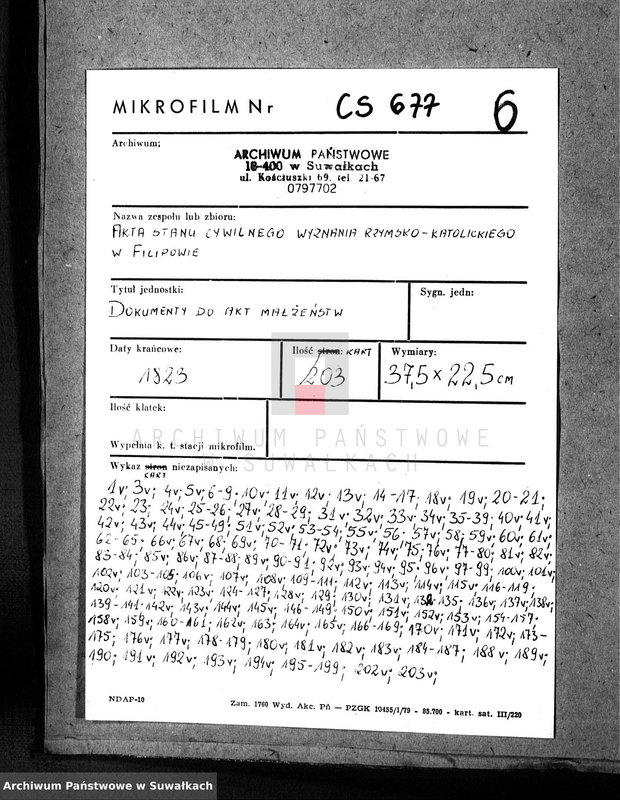 MIKROFILM Nr CS 677 6
Archiwum;
ARCHIWUM PAŃSTWOWE
16-400 w Suwałkach
ul. Kościuszki 69. tel 21-67
0797702
Nazwa zespołu lub zbioru:
AKTA STANU CYWILNEGO WYZNANIA RZYMSKO-KATOLICKIEGO
W FILIPOWIE
Tytuł jednostki:
Sygn. jedn:
DOKUMENTY DO AKT MAŁŻEŃSTW
Daty krańcowe:
Ilość stron: KART
Wymiary:
1823
203
37,5 x 22,5 cm
Ilość klatek:
ARCHIWUM PAŃSTWOWE
W SUWAŁKACH
Wypełnia k. t. stacji mikrofilm.
Wykaz stron niezapisanych:
KART
1v; 3v; 4v; 5v; 6-9; 10v; 11v; 12v; 13v; 14-17; 18v; 19v; 20-21;
22v; 23; 24v; 25-26; 27v; 28-29; 31v; 32v; 33v; 34v; 35-39; 40v; 41v;
42v; 43v; 44v; 45-49; 51v; 52v; 53-54; 55v; 56; 57v; 58; 59v; 60v; 61v;
62-65; 66v; 67v; 68; 69v; 70-71; 72v; 73v; 74v; 75; 76v; 77-80; 81v; 82v;
83-84; 85v; 86v; 87-88; 89v; 90-91; 92v; 93v; 94v; 95; 96v; 97-99; 100v; 101v;
102v; 103-105; 106v; 107v; 108v; 109-111; 112v; 113v; 114v; 115v; 116-119;
120v; 121v; 122v; 123v; 124-127; 128v; 129; 130v; 131v; 132-135; 136v; 137v; 138v;
139-141; 142v; 143v; 144v; 145v; 146-149; 150v; 151v; 152v; 153v; 154-157;
158v; 159v; 160-161; 162v; 163; 164v; 165v; 166-169; 170v; 171v; 172v; 173-
175; 176v; 177v; 178-179; 180v; 181v; 182v; 183v; 184-187; 188v; 189v;
190; 191v; 192v; 193v; 194v; 195-199; 202v; 203v;
NDAP-10
Zam. 1760 Wyd. Akc. Pń — PZGK 10455/1/79 - 85.700 - kart. sat. III/220
Archiwum Państwowe w Suwałkach